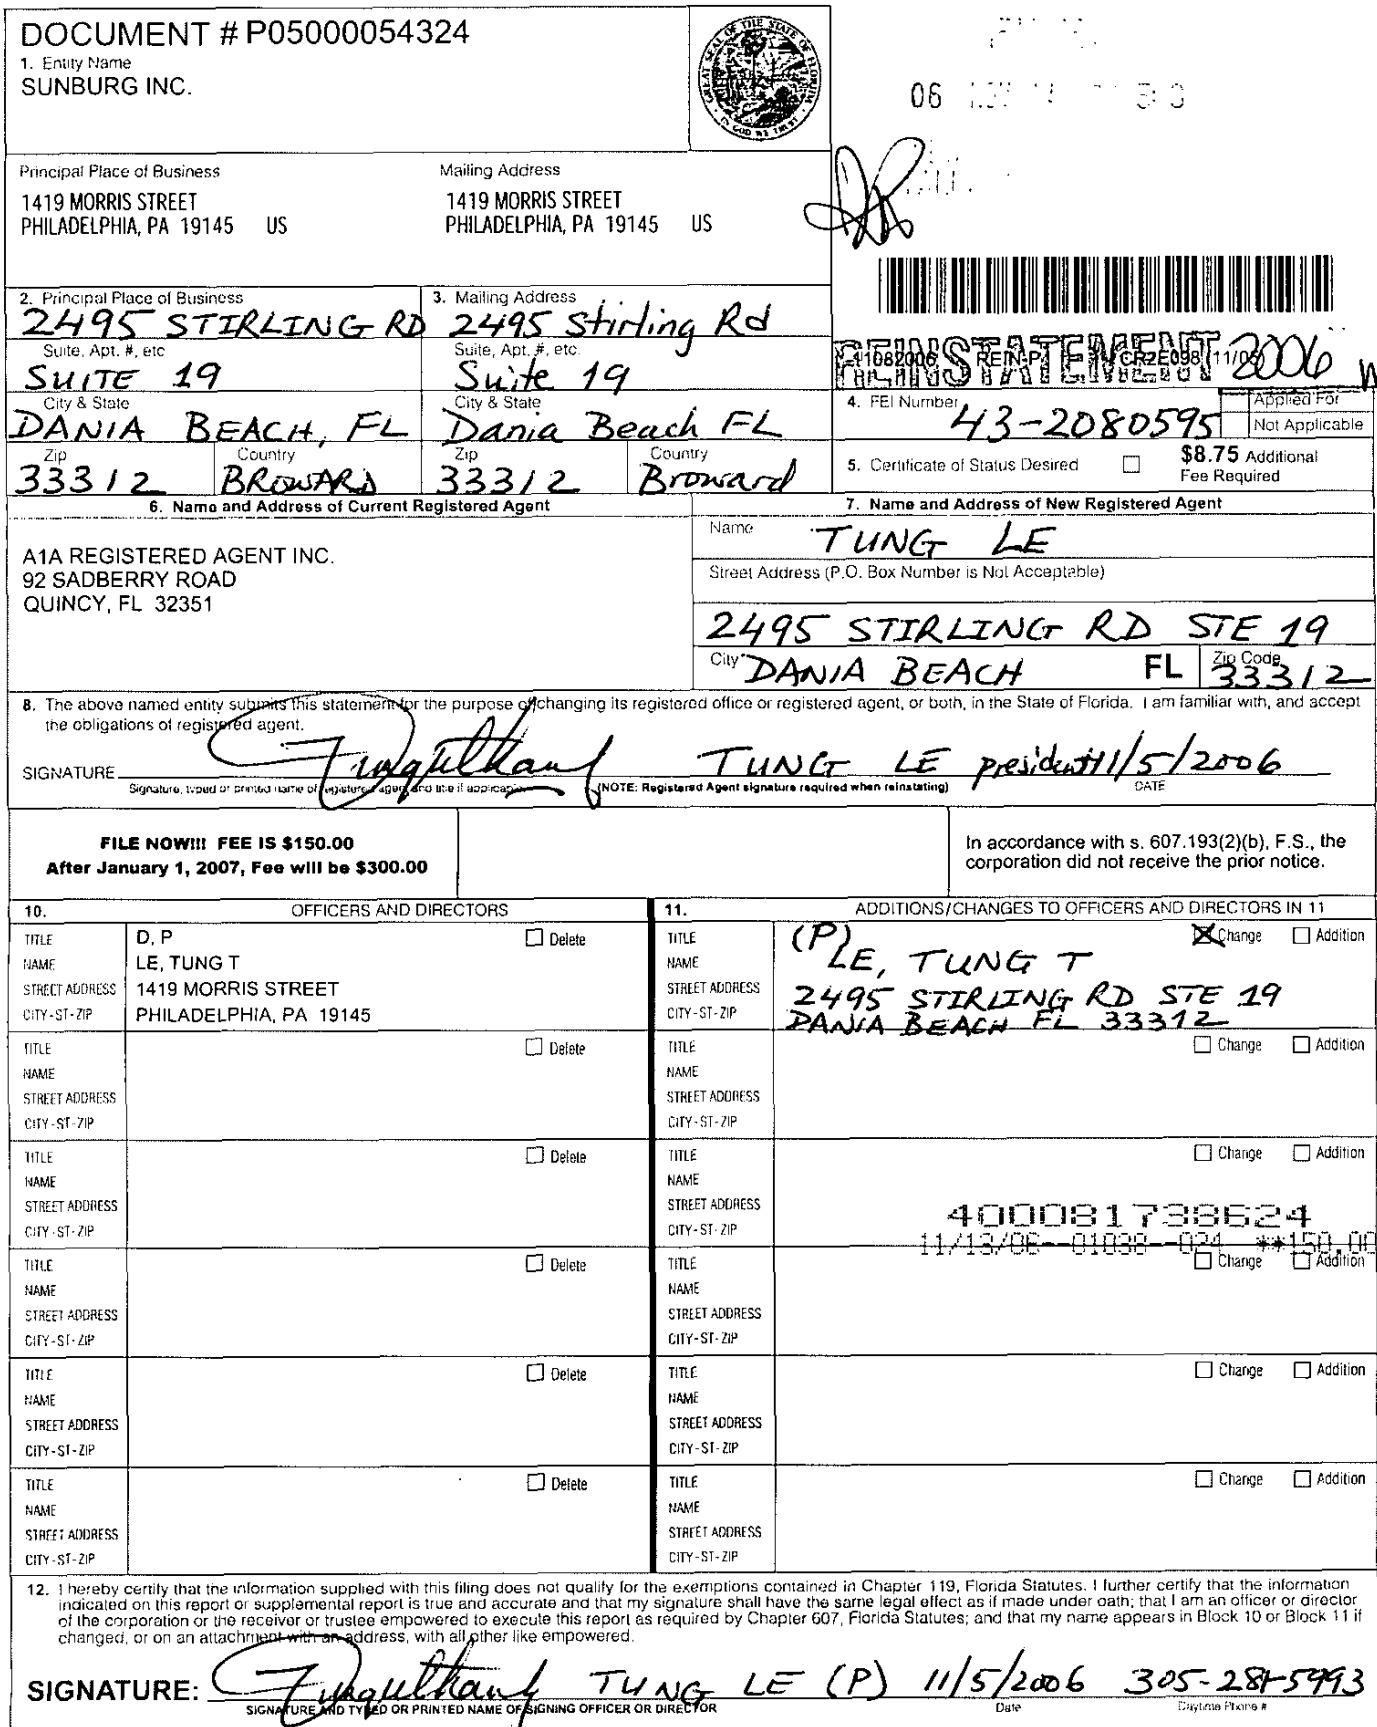 DOCUMENT # P05000054324
1. Entity Name
SUNBURG INC.
GREAT SEAL OF THE STATE OF FLORIDA
IN GOD WE TRUST
06
Principal Place of Business
1419 MORRIS STREET
PHILADELPHIA, PA 19145 US
Mailing Address
1419 MORRIS STREET
PHILADELPHIA, PA 19145 US
2. Principal Place of Business
2495 STIRLING RD
3. Mailing Address
2495 Stirling Rd
Suite, Apt. #, etc
SUITE 19
Suite, Apt. #, etc.
Suite 19
City & State
DANIA BEACH, FL
City & State
Dania Beach FL
Zip
33312
Country
BROWARD
Zip
33312
Country
Broward
REINSTATEMENT 2006
11082006 REIN-P CR2E098 (11/05)
4. FEI Number
43-2080595
Applied For
Not Applicable
5. Certificate of Status Desired
$8.75 Additional
Fee Required
6. Name and Address of Current Registered Agent
A1A REGISTERED AGENT INC.
92 SADBERRY ROAD
QUINCY, FL 32351
7. Name and Address of New Registered Agent
Name
TUNG LE
Street Address (P.O. Box Number is Not Acceptable)
2495 STIRLING RD STE 19
City DANIA BEACH FL Zip Code 33312
8. The above named entity submits this statement for the purpose of changing its registered office or registered agent, or both, in the State of Florida. I am familiar with, and accept
the obligations of registered agent.
SIGNATURE TUNG LE president 11/5/2006
Signature, typed or printed name of registered agent and title if applicable (NOTE: Registered Agent signature required when reinstating) DATE
FILE NOW!!! FEE IS $150.00
After January 1, 2007, Fee will be $300.00
In accordance with s. 607.193(2)(b), F.S., the
corporation did not receive the prior notice.
10. OFFICERS AND DIRECTORS
TITLE D, P Delete
NAME LE, TUNG T
STREET ADDRESS 1419 MORRIS STREET
CITY-ST-ZIP PHILADELPHIA, PA 19145
TITLE Delete
NAME
STREET ADDRESS
CITY-ST-ZIP
TITLE Delete
NAME
STREET ADDRESS
CITY-ST-ZIP
TITLE Delete
NAME
STREET ADDRESS
CITY-ST-ZIP
TITLE Delete
NAME
STREET ADDRESS
CITY-ST-ZIP
TITLE Delete
NAME
STREET ADDRESS
CITY-ST-ZIP
11. ADDITIONS/CHANGES TO OFFICERS AND DIRECTORS IN 11
TITLE (P) Change Addition
NAME LE, TUNG T
STREET ADDRESS 2495 STIRLING RD STE 19
CITY-ST-ZIP DANIA BEACH FL 33312
TITLE Change Addition
NAME
STREET ADDRESS
CITY-ST-ZIP
TITLE Change Addition
NAME
STREET ADDRESS
CITY-ST-ZIP
400081738624
11/13/06--01038--024 **150.00
TITLE Change Addition
NAME
STREET ADDRESS
CITY-ST-ZIP
TITLE Change Addition
NAME
STREET ADDRESS
CITY-ST-ZIP
TITLE Change Addition
NAME
STREET ADDRESS
CITY-ST-ZIP
12. I hereby certify that the information supplied with this filing does not qualify for the exemptions contained in Chapter 119, Florida Statutes. I further certify that the information
indicated on this report or supplemental report is true and accurate and that my signature shall have the same legal effect as if made under oath; that I am an officer or director
of the corporation or the receiver or trustee empowered to execute this report as required by Chapter 607, Florida Statutes; and that my name appears in Block 10 or Block 11 if
changed, or on an attachment with an address, with all other like empowered.
SIGNATURE: TUNG LE (P) 11/5/2006
SIGNATURE AND TYPED OR PRINTED NAME OF SIGNING OFFICER OR DIRECTOR Date Daytime Phone #